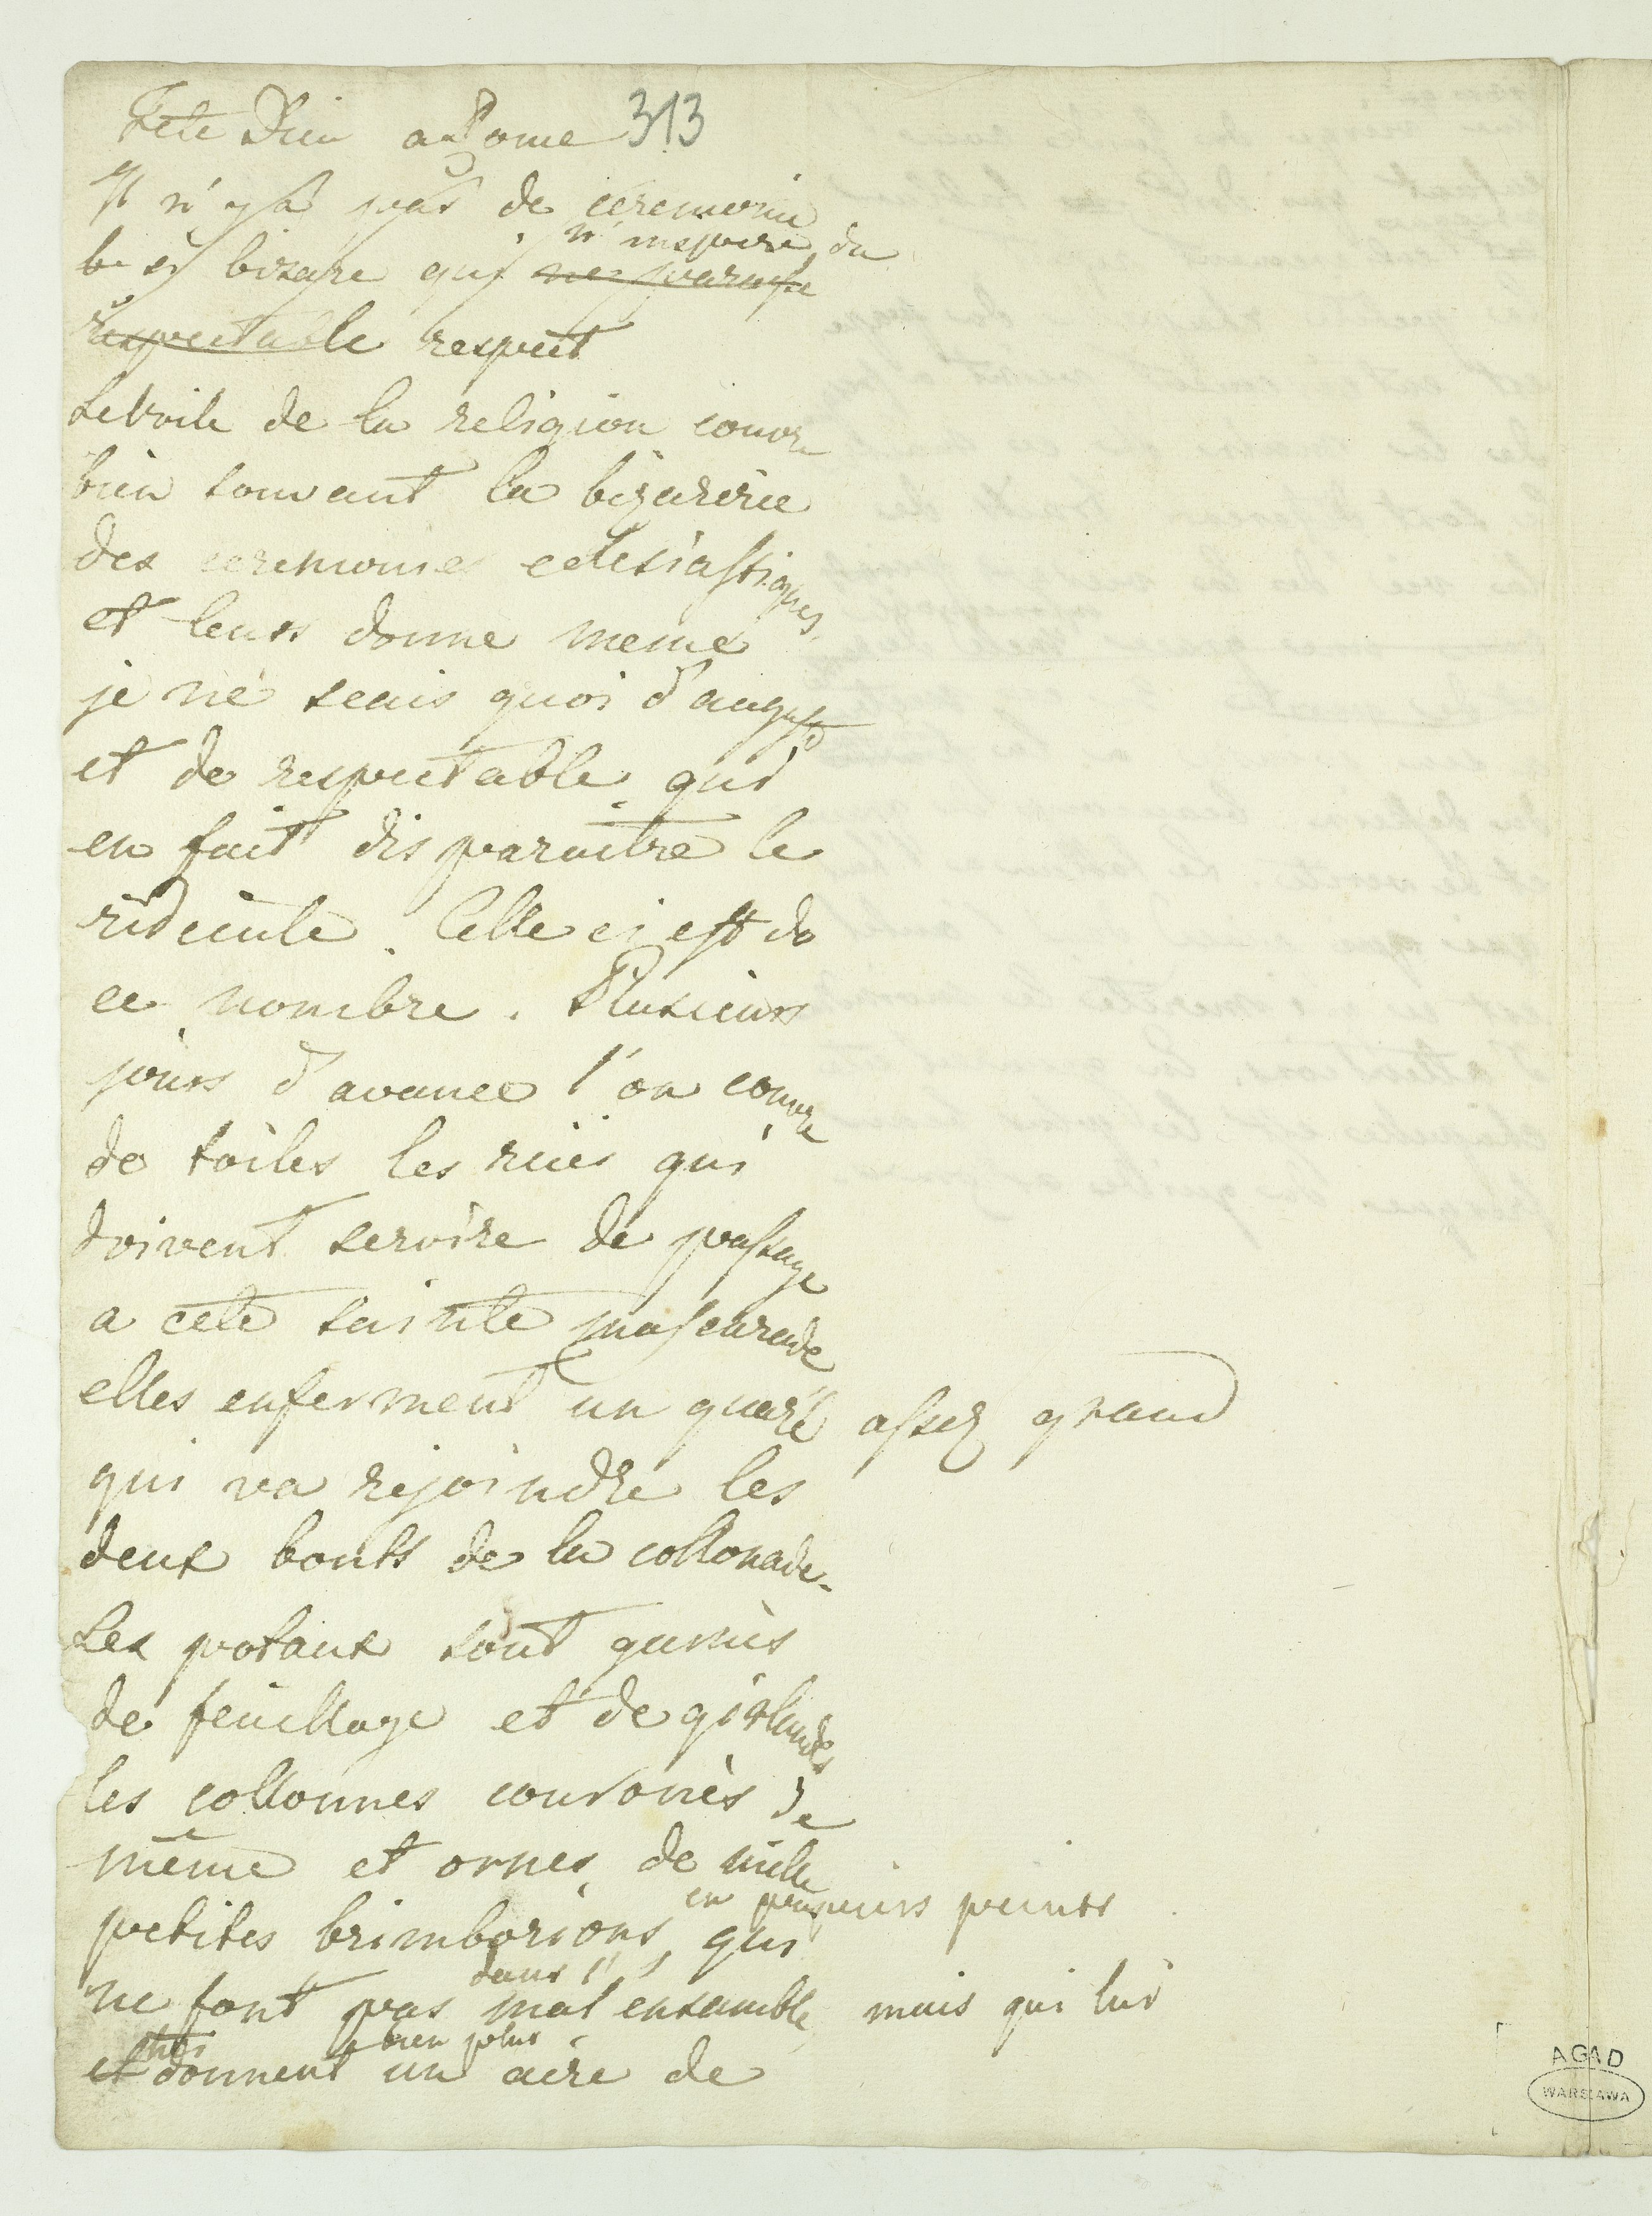 Fete Dieu a Rome 313
Il n'y a pas de ceremonie
n'inspire du
si bizare qui ne paraisse
respectable respect
Le voile de la religion couvre
bien souvant la bizarerie
des ceremonies eclesiastiques
et leurs donne meme
je ne scais quoi d'auguste
et de respectable qui
en fait disparaitre le
ridicule. Celle ci est de
ce nombre. Plusieurs
jours d'avance l'on couvre
de toiles les rües qui
doivent servire de passage
a cete sainte mascarade
elles enferment un quaré assez grand
qui va rejoindre les
deux bouts de la collonade.
Les potaux sont garnis
de feuillage et de girlandes
les collonnes couronés de
même et ornes de mille
en plusieurs peints
petites brimborions qui
dans l'
ne font pas mal ensamble mais qui lui
bien plus
et donnent un aire de
AGAD
WARSZAWA